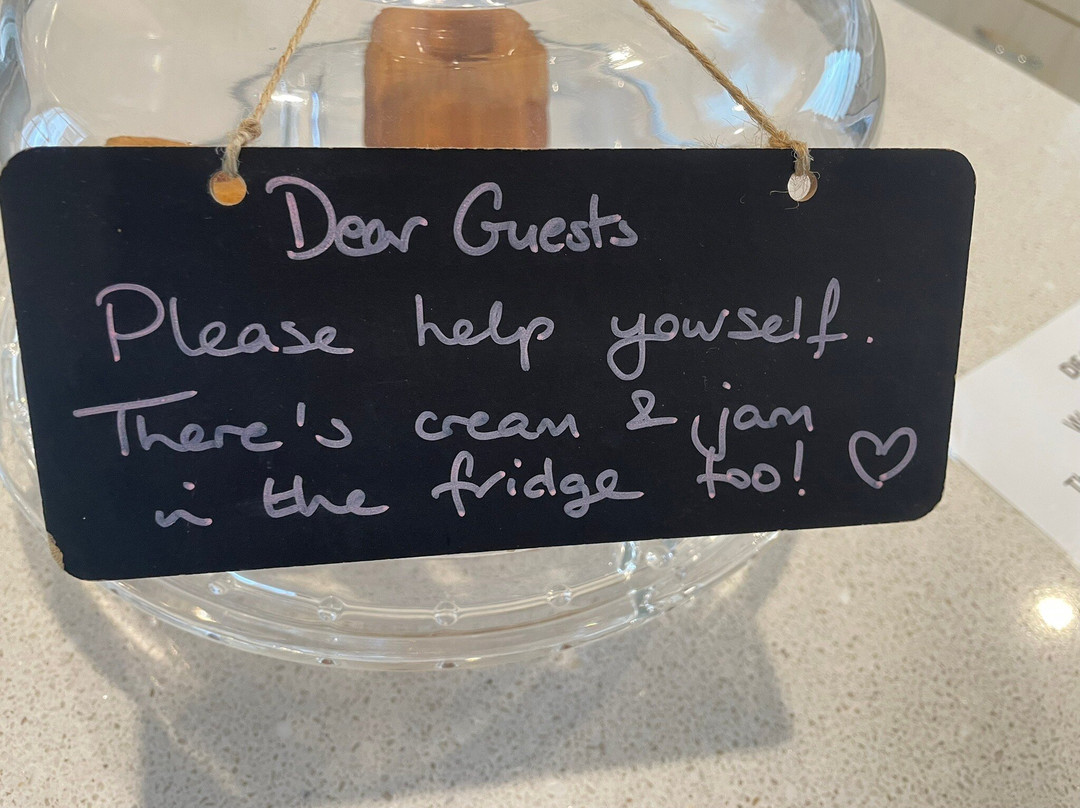 Dear Guests
Please help yourself.
There's cream & jam
in the fridge too! ♡